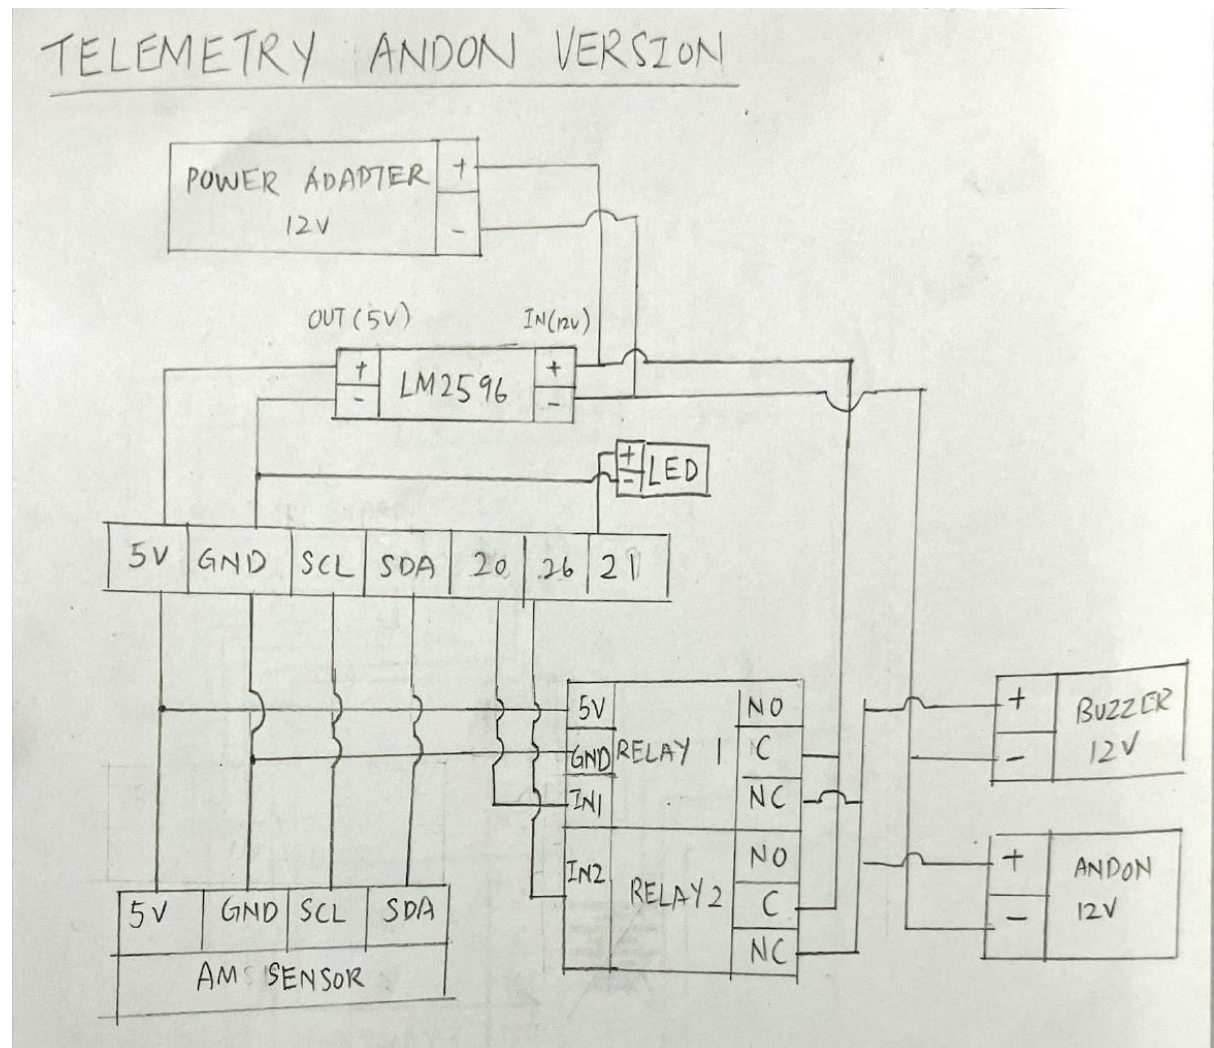 TELEMETRY ANDON VERSION
POWER ADAPTER
12V
+
-
OUT (5V)
IN (12V)
+
-
LM2596
+
-
+
-
LED
5V GND SCL SDA 20 26 21
5V
GND
IN1
RELAY 1
NO
C
NC
IN2
RELAY 2
NO
C
NC
+
-
BUZZER
12V
+
-
ANDON
12V
5V GND SCL SDA
AMS SENSOR